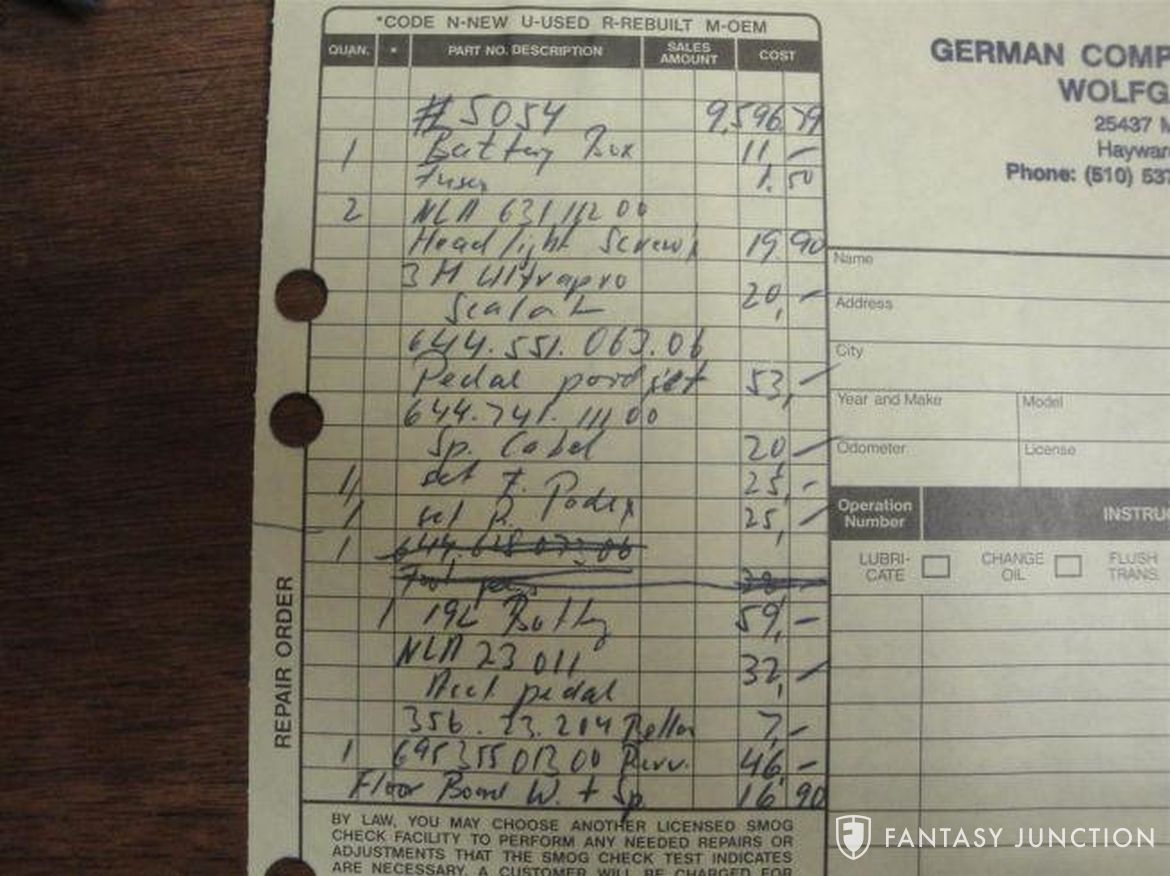 *CODE N-NEW U-USED R-REBUILT M-OEM
QUAN. * PART NO. DESCRIPTION SALES AMOUNT COST
#5054 9,596 79
1 Battery Box 11 –
fuses 1. 50
2 NLA 631 111 2 00
Headlight Screws 19 90
3M Ultrapro
Sealant 20, –
644.551.063.06
Pedal set 53, –
644.741.111 00
Sp. Cabel 20 –
1 set F. 25, –
1 set R. 25, –
1 644.618.073.06
Foot
1 192 59, –
NLA 23 011 32, –
Accl pedal
356. 23. 214 7, –
1 695 355 013 00 46, –
Floor Board W. + Sp. 16, 90
BY LAW, YOU MAY CHOOSE ANOTHER LICENSED SMOG
CHECK FACILITY TO PERFORM ANY NEEDED REPAIRS OR
ADJUSTMENTS THAT THE SMOG CHECK TEST INDICATES
ARE NECESSARY. A CUSTOMER WILL BE CHARGED FOR
REPAIR ORDER
GERMAN COMP
WOLFG
25437 M
Haywar
Phone: (510) 537
Name
Address
City
Year and Make Model
Odometer License
Operation Number INSTRU
LUBRI-CATE CHANGE OIL FLUSH TRANS.
FANTASY JUNCTION